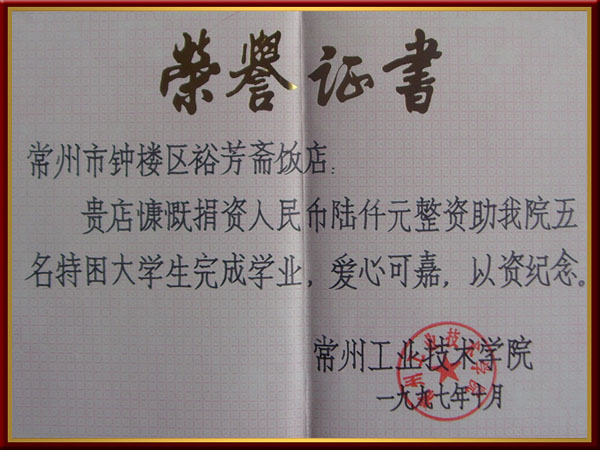 荣誉证书
常州市钟楼区裕芳斋饭店：
贵店慷慨捐资人民币陆仟元整资助我院五
名特困大学生完成学业，爱心可嘉，以资纪念。
常州工业技术学院
一九九七年十月